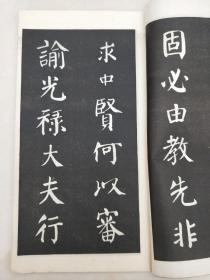 固必由教先非
求中賢何以審
諭光祿大夫行